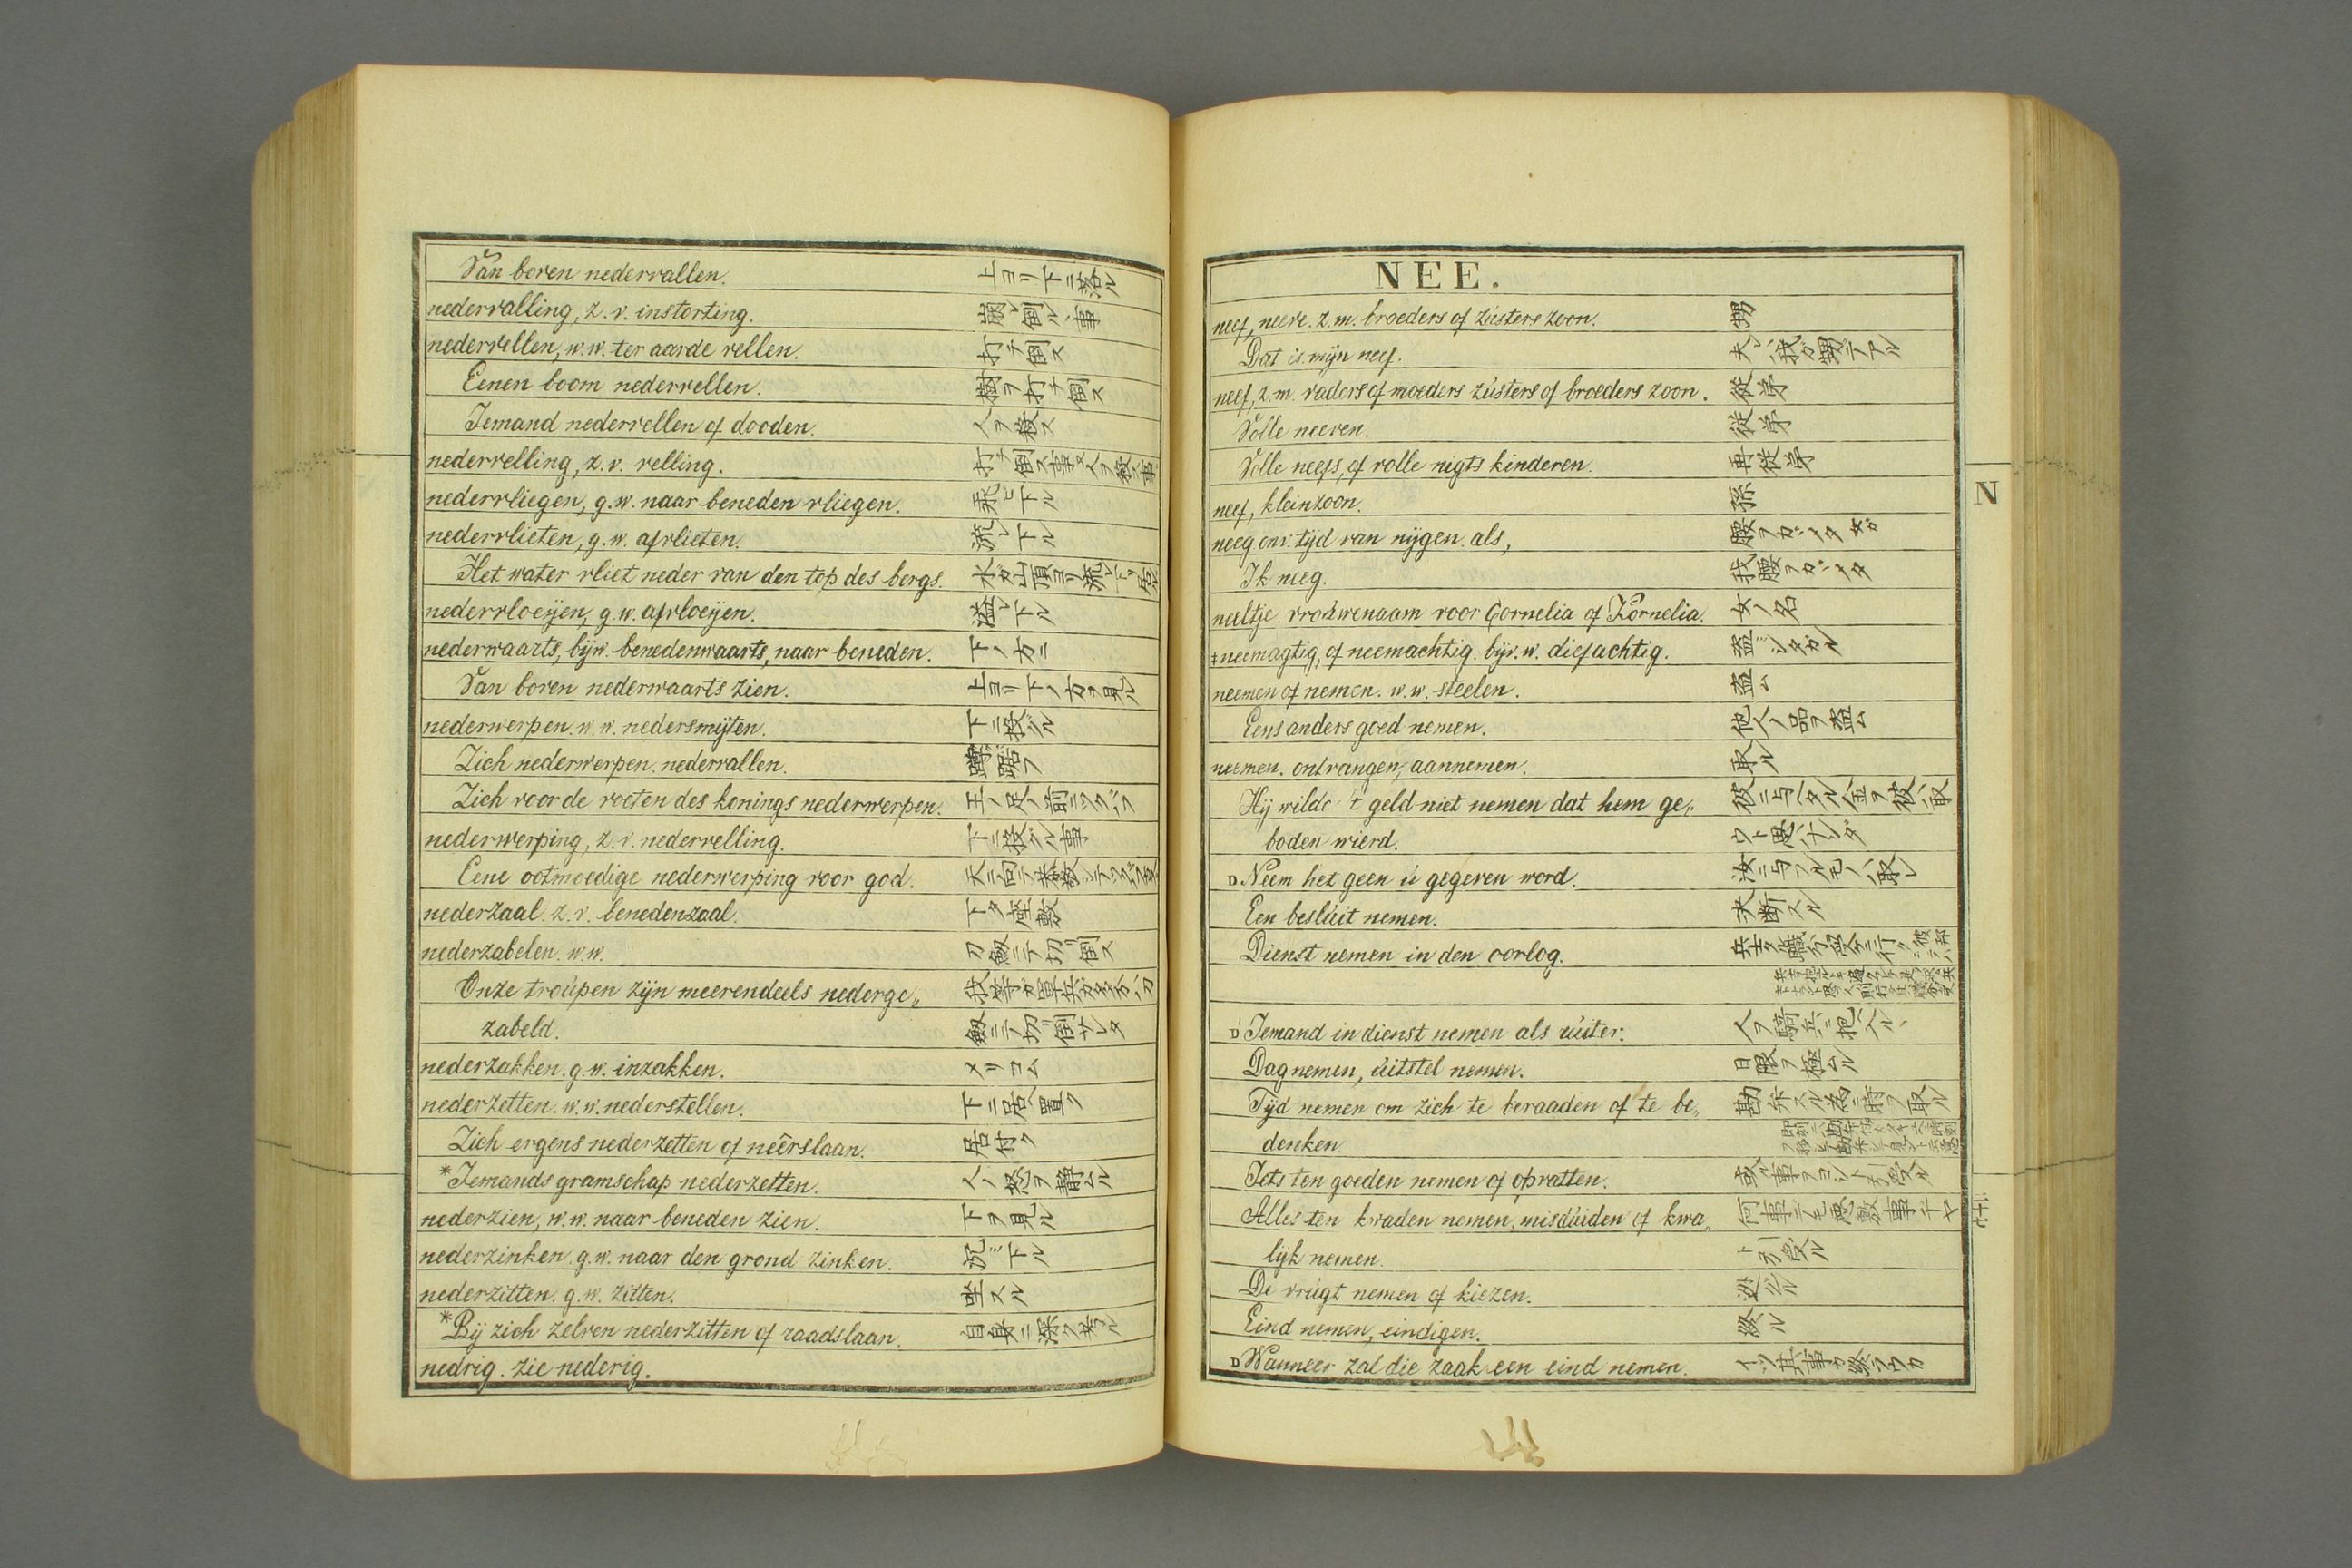 Van boven nedervallen. 上ヨリ下ニ落ル
nedervalling, z. v. instorting. 崩レ倒ル事
nedervellen, w.w. ter aarde vellen. 打チ倒ス
Eenen boom nedervellen. 樹ヲ打チ倒ス
Iemand nedervellen of dooden. 人ヲ殺ス
nedervelling, z. v. velling. 打チ倒ス事又人ヲ殺ス事
nedervliegen, g.w. naar beneden vliegen. 飛ビ下ル
nedervlieten, g.w. afvlieten. 流レ下ル
Het water vliet neder van den top des bergs. 水ガ山ノ頂ヨリ流レ下ル
nedervloeijen, g.w. afvloeijen. 溢レ下ル
nederwaarts, bijw. benedenwaarts, naar beneden. 下ノ方ニ
Van boven nederwaarts zien. 上ヨリ下ノ方ヲ見ル
nederwerpen. w.w. nedersmijten. 下ニ投グル
Zich nederwerpen. nedervallen. 蹲踞フ
Zich voor de voeten des konings nederwerpen. 王ノ足ノ前ニツクバフ
nederwerping, z. v. nedervelling. 下ニ投グル事
Eene ootmoedige nederwerping voor god. 天ニ向テ恭敬シテツクバフ事
nederzaal. z. v. benedenzaal. 下タ座敷
nederzabelen. w.w. 刀劔ニテ切リ倒ス
Onze troúpen zijn meerendeels nederge„ 我等ガ軍兵ガ多分刀
zabeld. 劔ニテ切リ倒サレタ
nederzakken. g.w. inzakken. メリコム
nederzetten. w.w. nederstellen. 下ニ居ヘ置ク
Zich ergens nederzetten of neêrslaan. 居付ク
*Iemands gramschap nederzetten. 人ノ怒ヲ静ムル
nederzien, w.w. naar beneden zien. 下ヲ見ル
nederzinken. g.w. naar den grond zinken. 沉ミ下ル
nederzitten. g.w. zitten. 坐スル
*Bij zich zelven nederzitten of raadslaan. 自身ニ深ク考ル
nedrig. zie nederig.
NEE.
neef, neeve. z.m. broeders of zústers zoon. 甥
Dat is mijn neef. 夫レハ我ガ甥デアル
neef, z.m. vaders of moeders zústers of broeders zoon. 從弟
Volle neeven. 從弟
Volle neefs, of volle nigts kinderen. 再從弟
neef, kleinzoon. 孫
neeg onv. tijd van nijgen. als, 腰ヲカヾメタ
Ik neeg. 我腰ヲカヾメタ
neeltje. vroúwenaam voor Cornelia of Kornelia. 女ノ名
‡neemagtig, of neemachtig. bijv. w. diefachtig. 盗ミシタガル
neemen of nemen. w.w. steelen. 盗ム
Eens anders goed nemen. 他人ノ品ヲ盗ム
neemen. ontvangen, aannemen. 取ル
Hij wilde 't geld niet nemen dat hem ge„ 彼ニ与ヘタル金ヲ彼ハ取
boden wierd. ウト思ハナンダ
D Neem het geen ú gegeven word. 汝ニ与フルモノハ取レ
Een beslúit nemen. 决断スル
Dienst nemen in den oorlog.
D Iemand in dienst nemen als rúiter. 人ヲ騎兵ニ抱ヘ入ル
Dag nemen, úitstel nemen. 日限ヲ極ムル
Tijd nemen om zich te beraaden of te be„ 勘弁スル為ニ時ヲ取ル
denken.
Iets ten goeden nemen of opvatten. 或ル事ヲヨシト引受ル
Alles ten kwaden nemen, misdúiden of kwa„ 何事ニテモ悪敷事ヂヤ
lijk nemen. ト引受ル
De vrúgt nemen of kiezen.
Eind nemen, eindigen. 終ル
D Wanneer zal die zaak een eind nemen. イツ其事ガ終ラウカ
N